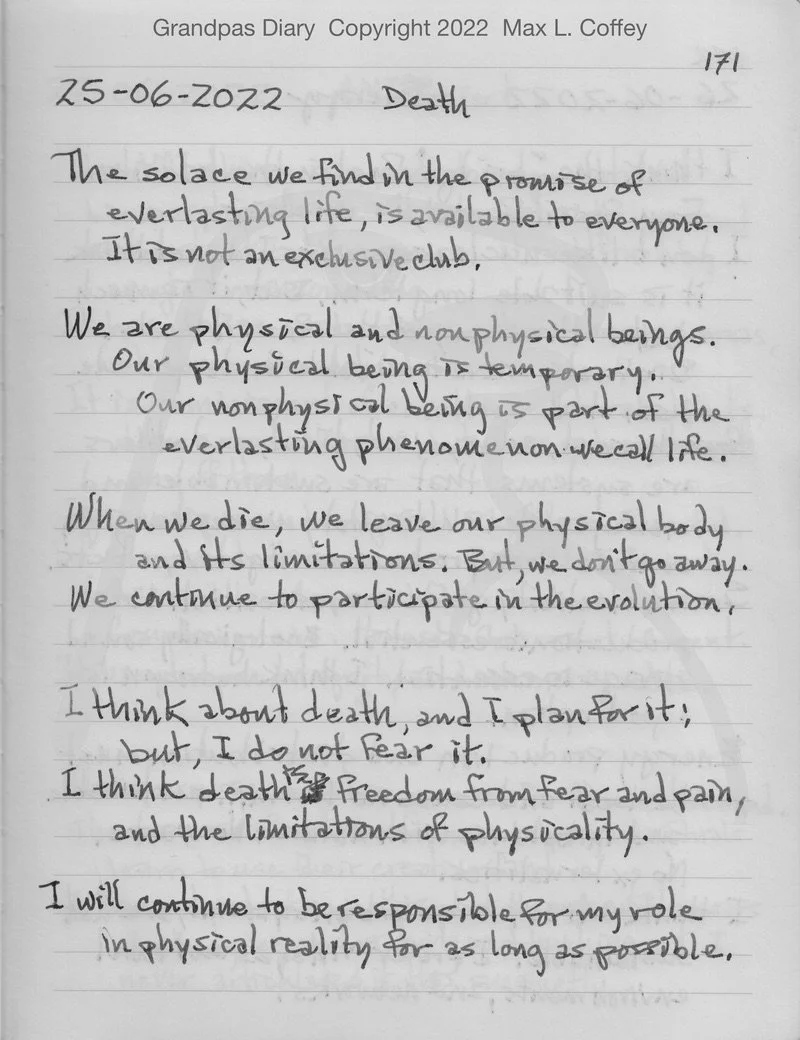 Grandpas Diary Copyright 2022 Max L. Coffey
171
25-06-2022 Death
The solace we find in the promise of
everlasting life, is available to everyone.
It is not an exclusive club.
We are physical and nonphysical beings.
Our physical being is temporary.
Our nonphysical being is part of the
everlasting phenomenon we call life.
When we die, we leave our physical body
and its limitations. But, we don't go away.
We continue to participate in the evolution.
I think about death, and I plan for it;
but, I do not fear it.
I think death is freedom from fear and pain,
and the limitations of physicality.
I will continue to be responsible for my role
in physical reality for as long as possible.